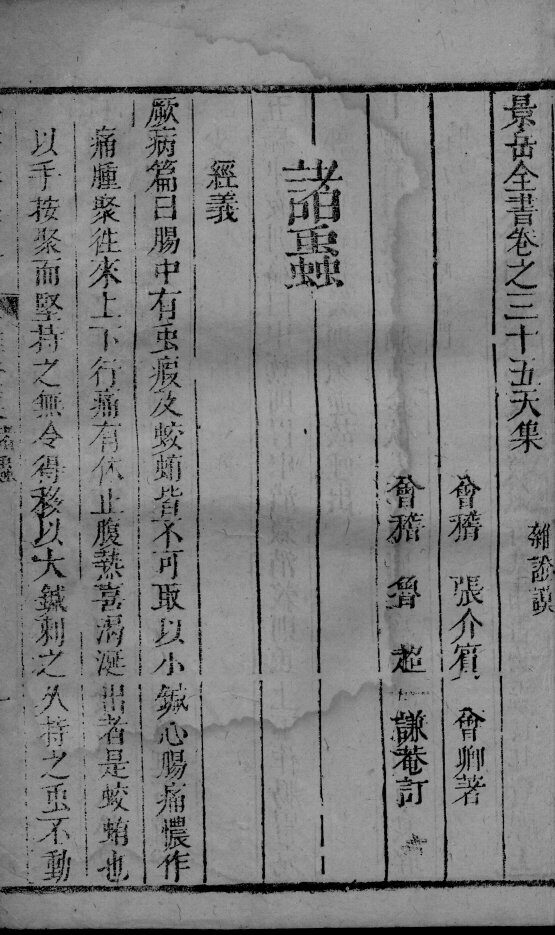 景岳全書卷之三十五天集
雜證謨
會稽 張介賓 會卿著
會稽 魯超 謙菴訂
諸蟲
經義
厥病篇曰腸中有虫瘕及蛟蛕皆不可取以小鍼心腸痛憹作
痛腫聚往來上下行痛有休止腹熱喜渴涎出者是蛟蛕也
以手按聚而堅持之無令得移以大鍼刺之久持之虫不動